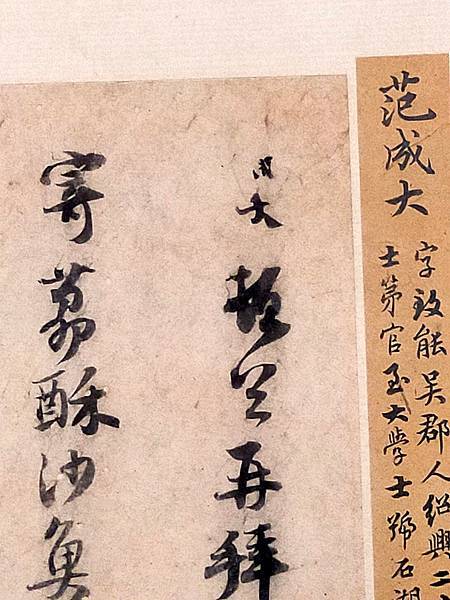 范成大
字致能吳郡人紹興二
士第官至大學士號石湖
成大再拜
寄荔酥沙魚